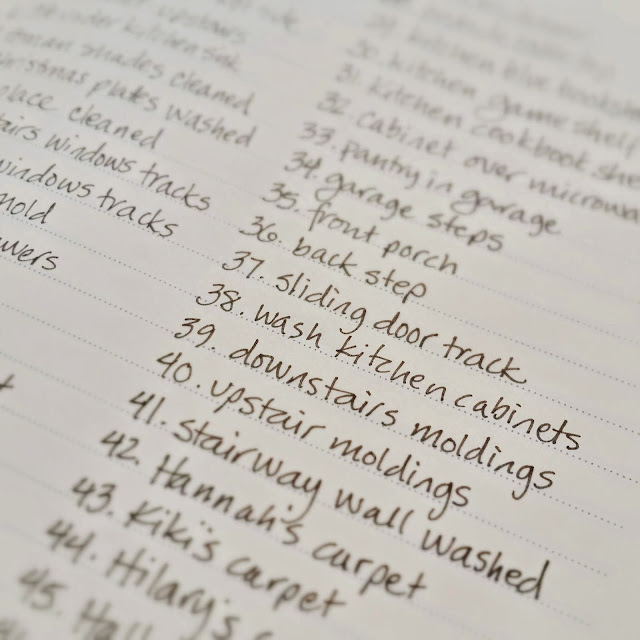 shades cleaned
washed
place cleaned
tairs windows tracks
windows tracks
mold
owers
30. kitchen game shelf
31. kitchen cookbook she
32. cabinet over microwa
33. pantry in garage
34. garage steps
35. front porch
36. back step
37. sliding door track
38. wash kitchen cabinets
39. downstairs moldings
40. upstair moldings
41. stairway wall washed
42. Hannah's carpet
43. Kiki's carpet
44. Hilary's c
45. Hall